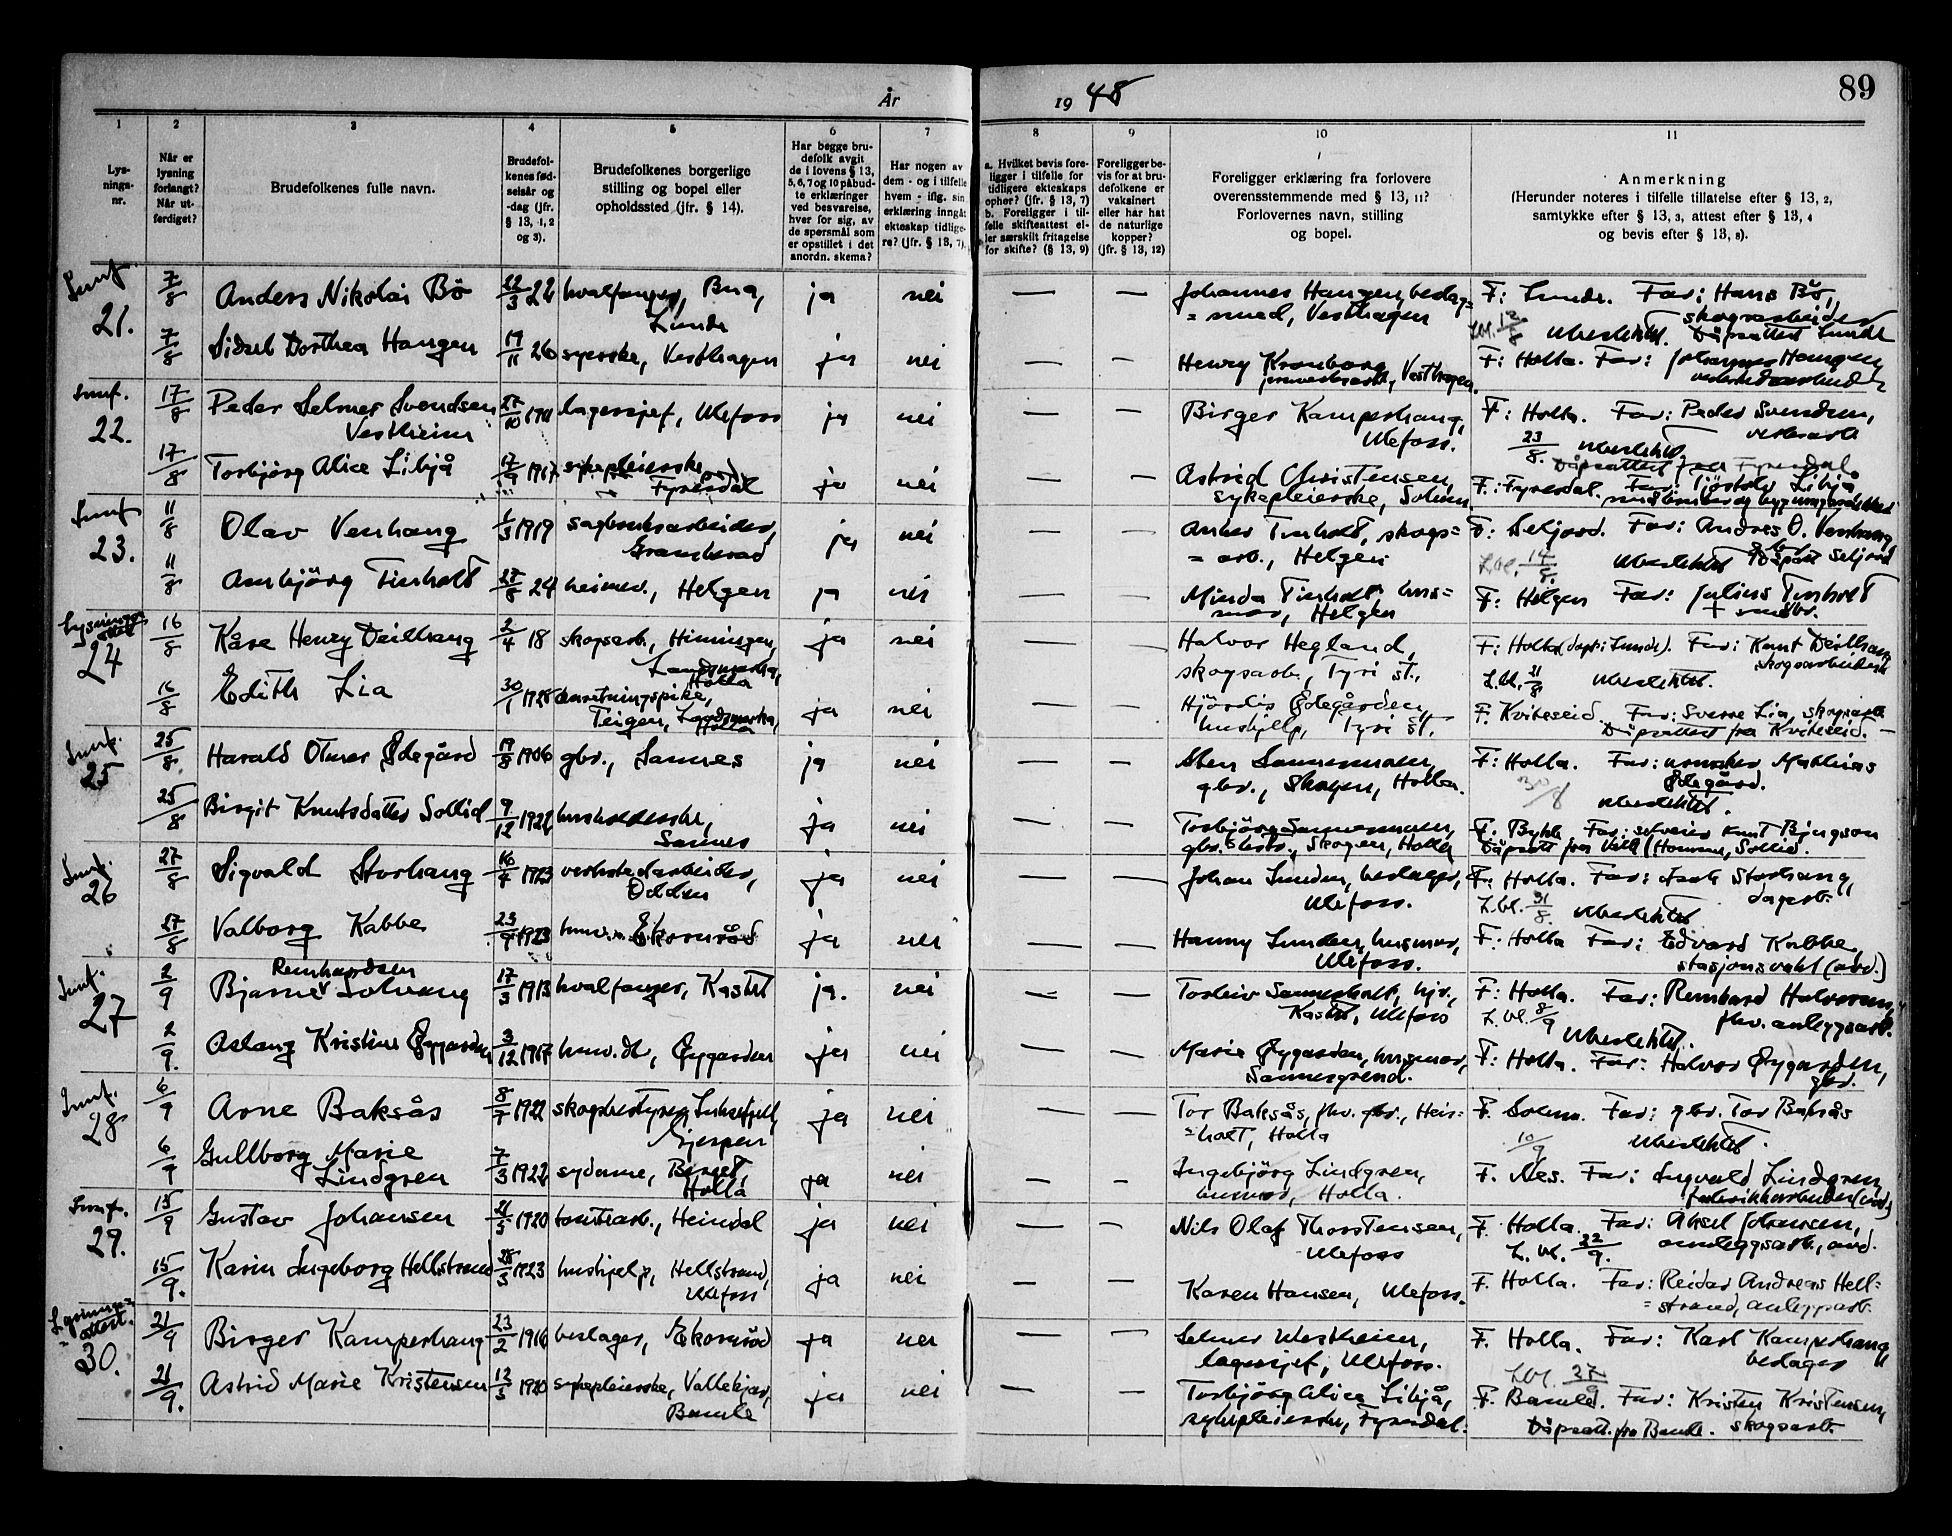 År 1948
89
1
2
3
4
5
6
7
8
9
10
11
Lys-
nings-
nr.
Når er
lysning
forlangt?
Når ut-
ferdiget?
Brudefolkenes fulle navn.
Brudefol-
kenes fød-
selsår og
-dag (jfr.
§ 13, 1, 2
og 3).
Brudefolkenes borgerlige
stilling og bopel eller
opholdssted (jfr. § 14).
Har begge bru-
defolk avgit
de i lovens § 13,
5, 6, 7 og 10 påbud-
te erklæringer
ved besvarelse,
hver for sig, av
de spørsmål som
er opstillet i det
anordn. skema?
Har nogen av
dem - og i tilfelle
hvem - iflg. sin
erklæring inngått
ekteskap tidlige-
re? (jfr. § 13, 7).
a. Hvilket bevis fore-
ligger i tilfelle for
tidligere ekteskaps
ophør? (jfr. § 13, 7)
b. Foreligger i til-
felle skifteattest el-
ler særskilt fritagelse
for skifte? (§ 13, 9)
Foreligger be-
vis for at bru-
defolkene er
vaksinert
eller har hat
de naturlige
kopper?
(jfr. § 13, 12)
Foreligger erklæring fra forlovere
overensstemmende med § 13, 11?
Forlovernes navn, stilling
og bopel.
Anmerkning
(Herunder noteres i tilfelle tillatelse efter § 13, 2,
samtykke efter § 13, 3, attest efter § 13, 4
og bevis efter § 13, 8).
21. 7/8 Anders Nikolai Bö 22/3 22 hvalfanger, Bua, ja nei — — Johannes Haugen, bedag= F: Lunde. Far: Hans Bö,
Lunde = smed, Vesthagen skogsarbeider
Ubesluttet. Dåpsattest Lunde
7/8 Sidsel Dorthea Haugen 19/11 26 syerske, Vesthagen ja nei — — Henry Kronborg F: Holla. Far: Johannes Haugen
Vesthagen. verkstedarbeider
22. 17/8 Peder Selmer Svendsen 27/10 1911 lagersjef, Ulefoss ja nei — — Birger Kamperhaug, F: Holla. Far: Peder Svendsen,
Vestheim Ulefoss. verksarb
23/8.
Dåpsattest fra Fyresdal.
17/8 Torbjørg Alice Libjå 17/9 1917 sykepleierske ja nei — — Astrid Christensen, F.: Fyresdal. Far: Tjöstolv Libjå
Fyresdal sykepleierske, Solum
23. 11/8 Olav Venhaug 1/3 1919 sagbruksarbeider, ja nei — — Anker Tinholt, skogs= F: Seljord. Far: Andres O. Venhaug
Grankerad = arb., Helgen
L.bl. 14/8. Seljord
11/8 Ambjörg Tinholt 27/8 24 heimev., Helgen ja nei — — Minda Tinholt, hus= F: Helgen Far: Julius Tinholt
mor, Helgen + småbr.
Lysnings
attest
24 16/8 Kåre Henry Deilhaug 2/4 18 skogsarb., Himingen, ja nei — — Halvor Hegland, F: Holla (döpt i Lunde). Far: Knut Deilhaug
Landsmarka, skogsarb., Tyri st., skogsarbeider
Holla L.bl. 21/8
16/8 Edith Lia 30/1 1925 anretningspike, ja nei — — Hjördis Ödegården, F. Kviteseid. Far: Sverre Lia, skogsarb
Teigen, Landsmarka, hushjelp, Tyri st. Dåpsattest fra Kviteseid.
Holla
25 25/8. Harald Otmer Ødegård 19/8 1906 gbr., Sannes ja nei — — Sannesmoen, F: Holla. Far: Mathias
gbr., Skogen, Holla. Ødegård.
30/8
25/8 Birgit Knutsdatter Sollid 9/12 1922 husholderske, ja nei — — Torbjörg Sannesmoen, F. Bykle. Far: Knut Bjurgson
Sannes gbr. Skogen, Holla Sollid.
26 27/8 Sigvald Storhaug 16/7 1923 verkstedarbeider, ja nei — — Johan Lunden, bedager, F: Holla. Far: Isak Storhaug,
Odden Ulefoss. dagarb.
L.bl. 31/8.
27/8 Valborg Kabbe 23/9 1923 husv. Ekornrød ja nei — — Hanny Lunden, husmor, F: Holla Far: Edvard Kabbe
Ulefoss. stasjonsvakt (avd.)
Reinhardsen
27 2/9 Bjarne Solvang 17/3 1913 hvalfanger, Kastet ja. nei — — Torleiv Sannesholt, F: Holla. Far: Reinhard Halvorsen,
Kastet, Ulefoss L.bl. 8/9 fhv. anleggsarb.
2/9. Aslaug Kristine Øygarden 3/12 1917 husv.dt, Øygarden ja nei — — Marie Øygarden, husmor, F: Holla. Far: Halvor Øygarden,
Sannesgrend. gbr.
28 6/9 Arne Baksås 8/7 1921 skogbestyrer, Luksefjell, ja nei — — Tor Baksås, fhv. gbr., Heis= F. Solum. Far: gbr. Tor Baksås
Gjerpen =holt, Holla
10/9
6/9 Gullborg Marie 7/3 1922 sydame, ja nei — — Ingebjörg Lindgren, F. Nes. Far: Ingvald Lindgren,
Lindgren Holla husmor, Holla. fabrikkarbeider (avd.)
29. 15/9 Gustav Johansen 21/3 1920 Heindal ja nei — — Nils Olaf Thorstensen, F. Holla. Far: Aksel Johansen,
Ulefoss L.bl. 22/9. anleggsarb., avd.
15/9. Karin Ingeborg Hellstrand 28/3 1923 hushjelp, Hellstrand, ja nei — — Karen Hansen, Ulefoss. F. Holla. Far: Reidar Andreas Hell=
Ulefoss =strand, anleggsarb.
Lysnings=
attest.
30. 21/9 Birger Kamperhaug 23/2 1916 bedager, Ekornrød ja nei — — Selmer Vestheim, F. Holla. Far: Karl Kamperhaug,
lagersjef, Ulefoss. bedager
L.bl. 27/9
21/9. Astrid Marie Kristensen 12/3 1920 sykepleierske, Vallekjær, ja nei — — Torbjörg Alice Libjå, F. Bamle. Far: Kristen Kristensen,
Bamle sykepleierske, Fyresdal. Dåpsatt. fra Bamle. skogsarb.